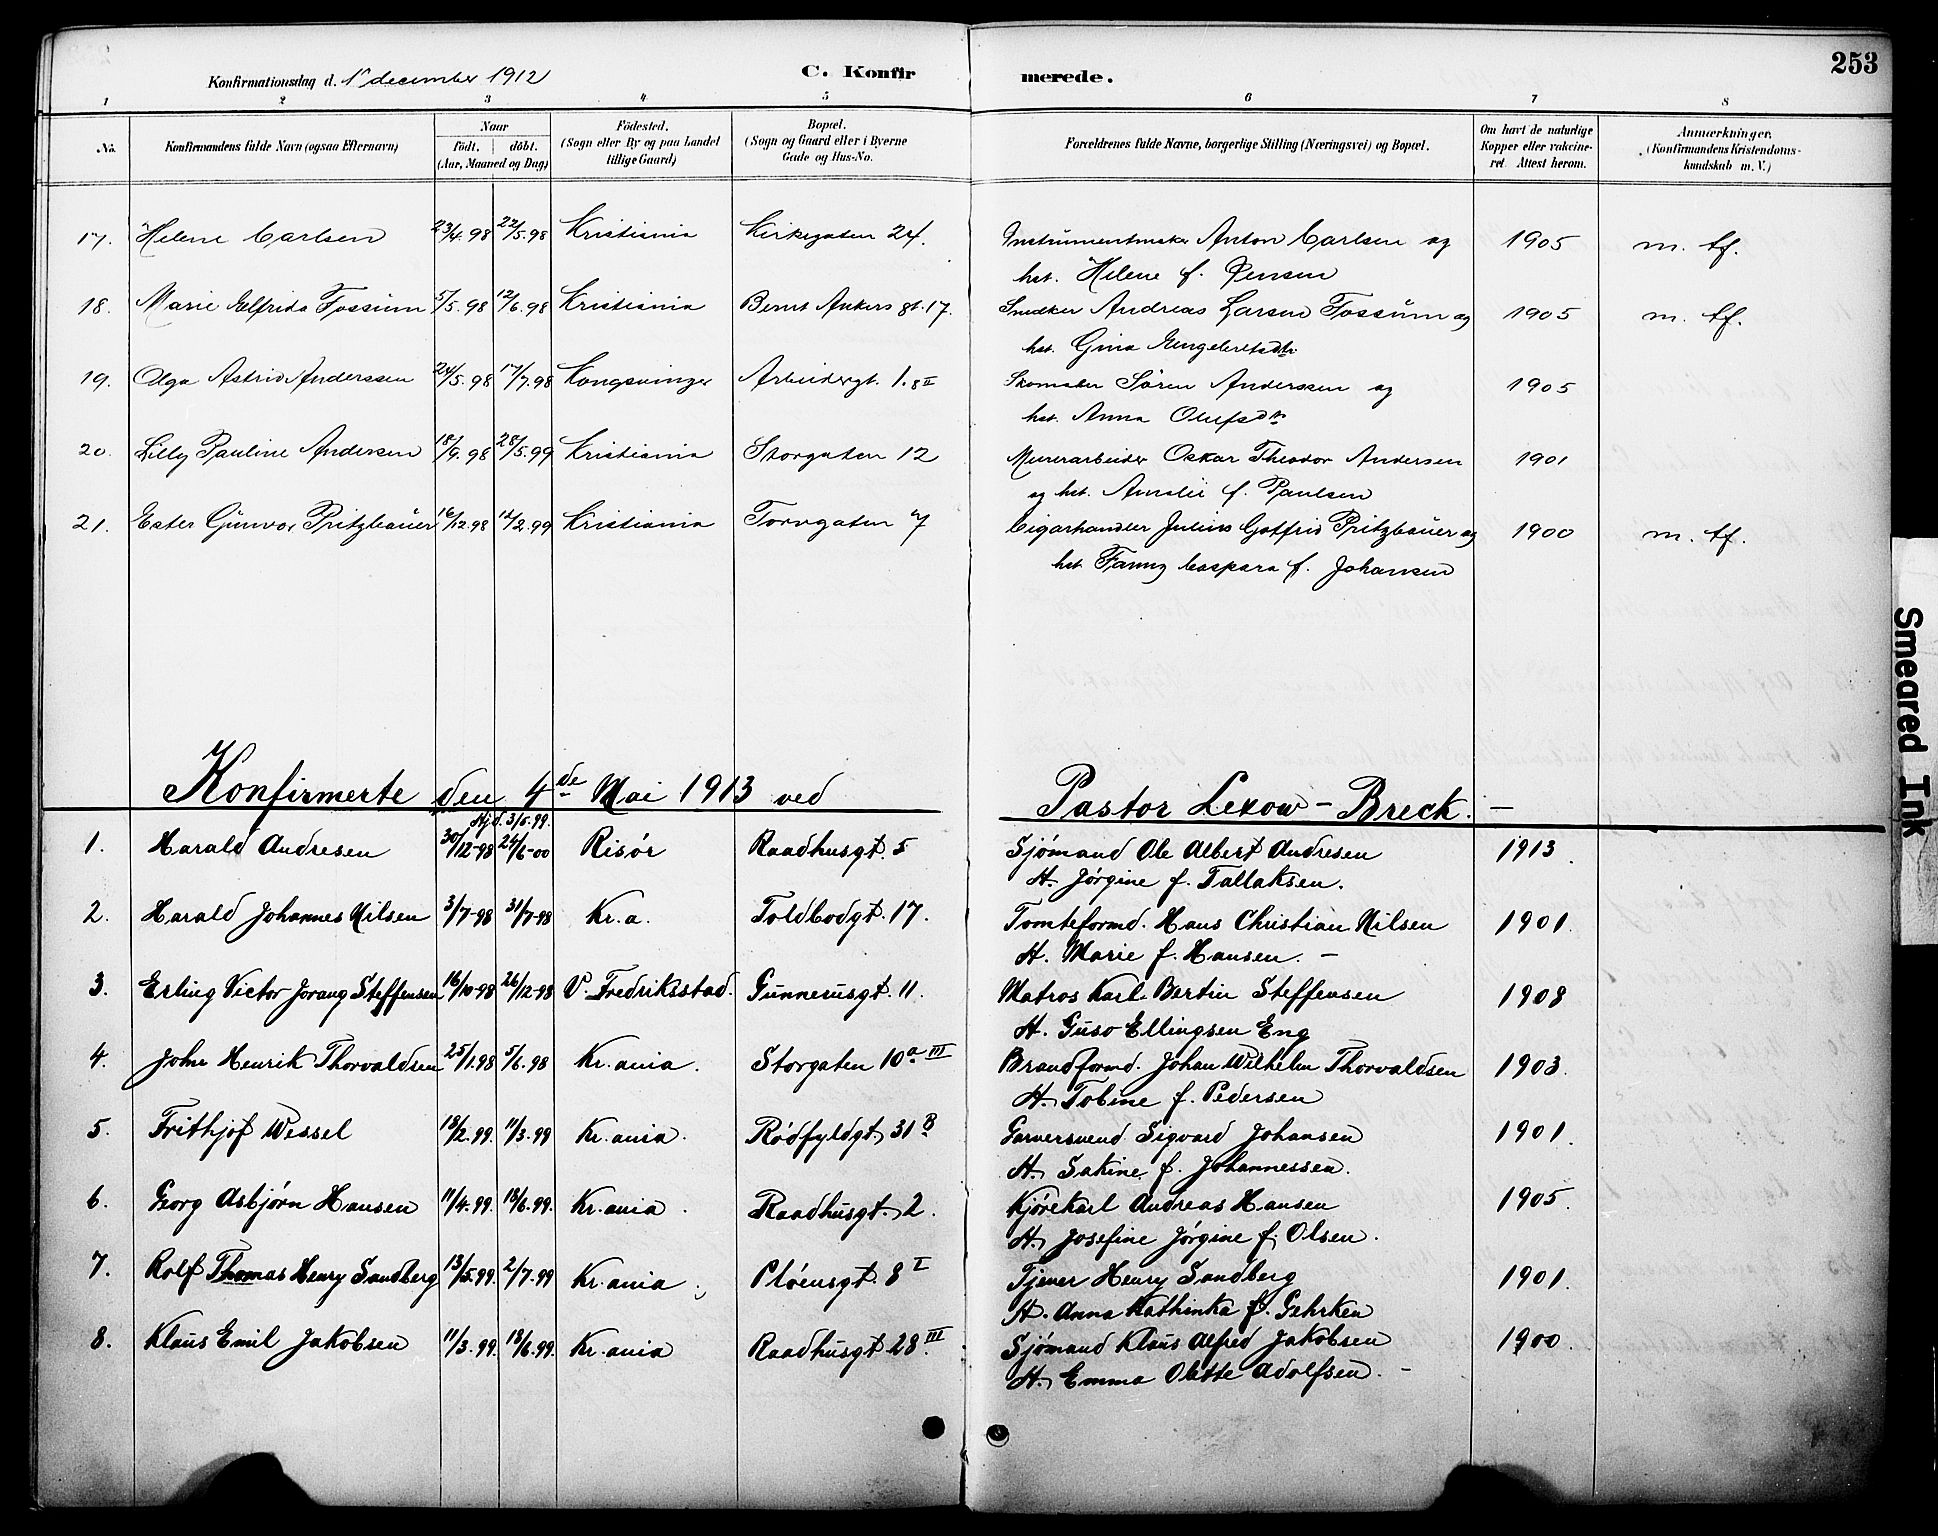 253
Konfirmationsdag d. 1' december 1912 C. Konfirmerede.
1 2 3 4 5 6 7 8
No. Konfirmandens fulde Navn (ogsaa Efternavn) Naar født. døbt. (Aar, Maaned og Dag) Fødested. (Sogn eller By og paa Landet tillige Gaard) Bopæl. (Sogn og Gaard eller i Byerne Gade og Hus-No. Forældrenes fulde Navne, borgerlige Stilling (Næringsvei) og Bopæl. Om havt de naturlige Kopper eller vakcineret. Attest herom. Anmærkninger. (Konfirmandens Kristendomskundskab m. V.)
17. Helene Carlsen 23/4.98 22/5.98 Kristiania Kirkegaten 24. Instrumentmaker Anton Carlsen og 1905 m. tf.
hst. Helene f. Jensen
18. Marie Elfrida Fossum 5/5.98 12/6.98 Kristiania Bernt Ankers gt. 17. Snedker Andreas Larsen Fossum og 1905 m. tf.
hst. Gina Engebretsdtr
19. Olga Astrid Anderssen 24/5.98 17/7.98 Kongsvinger Arbeidergt. 1. 8 II Skomaker Sören Anderssen og 1905
hst. Anna Olufsdtr
20. Lilly Pauline Andersen 18/9.98 28/5.99 Kristiania Storgaten 12 Murerarbeider Oskar Theodor Andersen 1901
og hst. Amalie f. Paulsen
21. Ester Gunvor Pritzbauer 16/12.98 12/2.99 Kristiania Torvgaten 7 Cigarhandler Julius Gotfrid Pritzbauer og 1900 m. tf.
hst Fanny Caspara f. Johansen
Konfirmerte den 4de Mai 1913 ved Pastor Lexow-Breck. —
Hjd. 3/5.99.
1. Harald Andresen 30/12-98 24/6-00 Risør Raadhusgt. 5 Sjømand Ole Albert Andresen 1913.
H. Jørgine f. Tallaksen.
2. Harald Johannes Nilsen 3/7-98 31/7-98 Kr.a. Toldbodgt. 17. Tomteformd. Hans Christian Nilsen 1901.
H. Marie f. Hansen. —
3. Erling Victor Jorang Steffensen 16/10-98 26/12-98 V. Fredriksstad. Gunnerusgt. 11. Matros Karl Bertin Steffensen 1908
H. Guso Ellingsen Eng
4. John Henrik Thorvaldsen 25/1.98 5/6.98 Kr.ania. Storgaten 10a III Brandformd. Johan Wilhelm Thorvaldsen 1903.
H. Tobine f. Pedersen
5. Frithjof Wessel 18/2.99. 11/3.99 Kr.ania. Rødfyldgt. 31 B Garversvend Sigvard Johansen 1901.
H. Sakine f. Johannessen.
6. Georg Asbjørn Hansen 11/4.99. 18/6.99. Kr.ania. Raadhusgt. 2. Kjørekarl Andreas Hansen 1905.
H. Josefine Jørgine f. Olsen.
7. Rolf Thomas Henry Sandberg 13/5.99. 2/7.99 Kr.ania. Pløensgt. 8 I Tjener Henry Sandberg 1901.
H. Anna Kathinka f. Gehrken
8. Klaus Emil Jakobsen 11/3.99. 18/6.99. Kr.ania Raadhusgt. 28 III Sjømand Klaus Alfred Jakobsen 1900.
H. Emma Olette Adolfsen. —
Smeared Ink